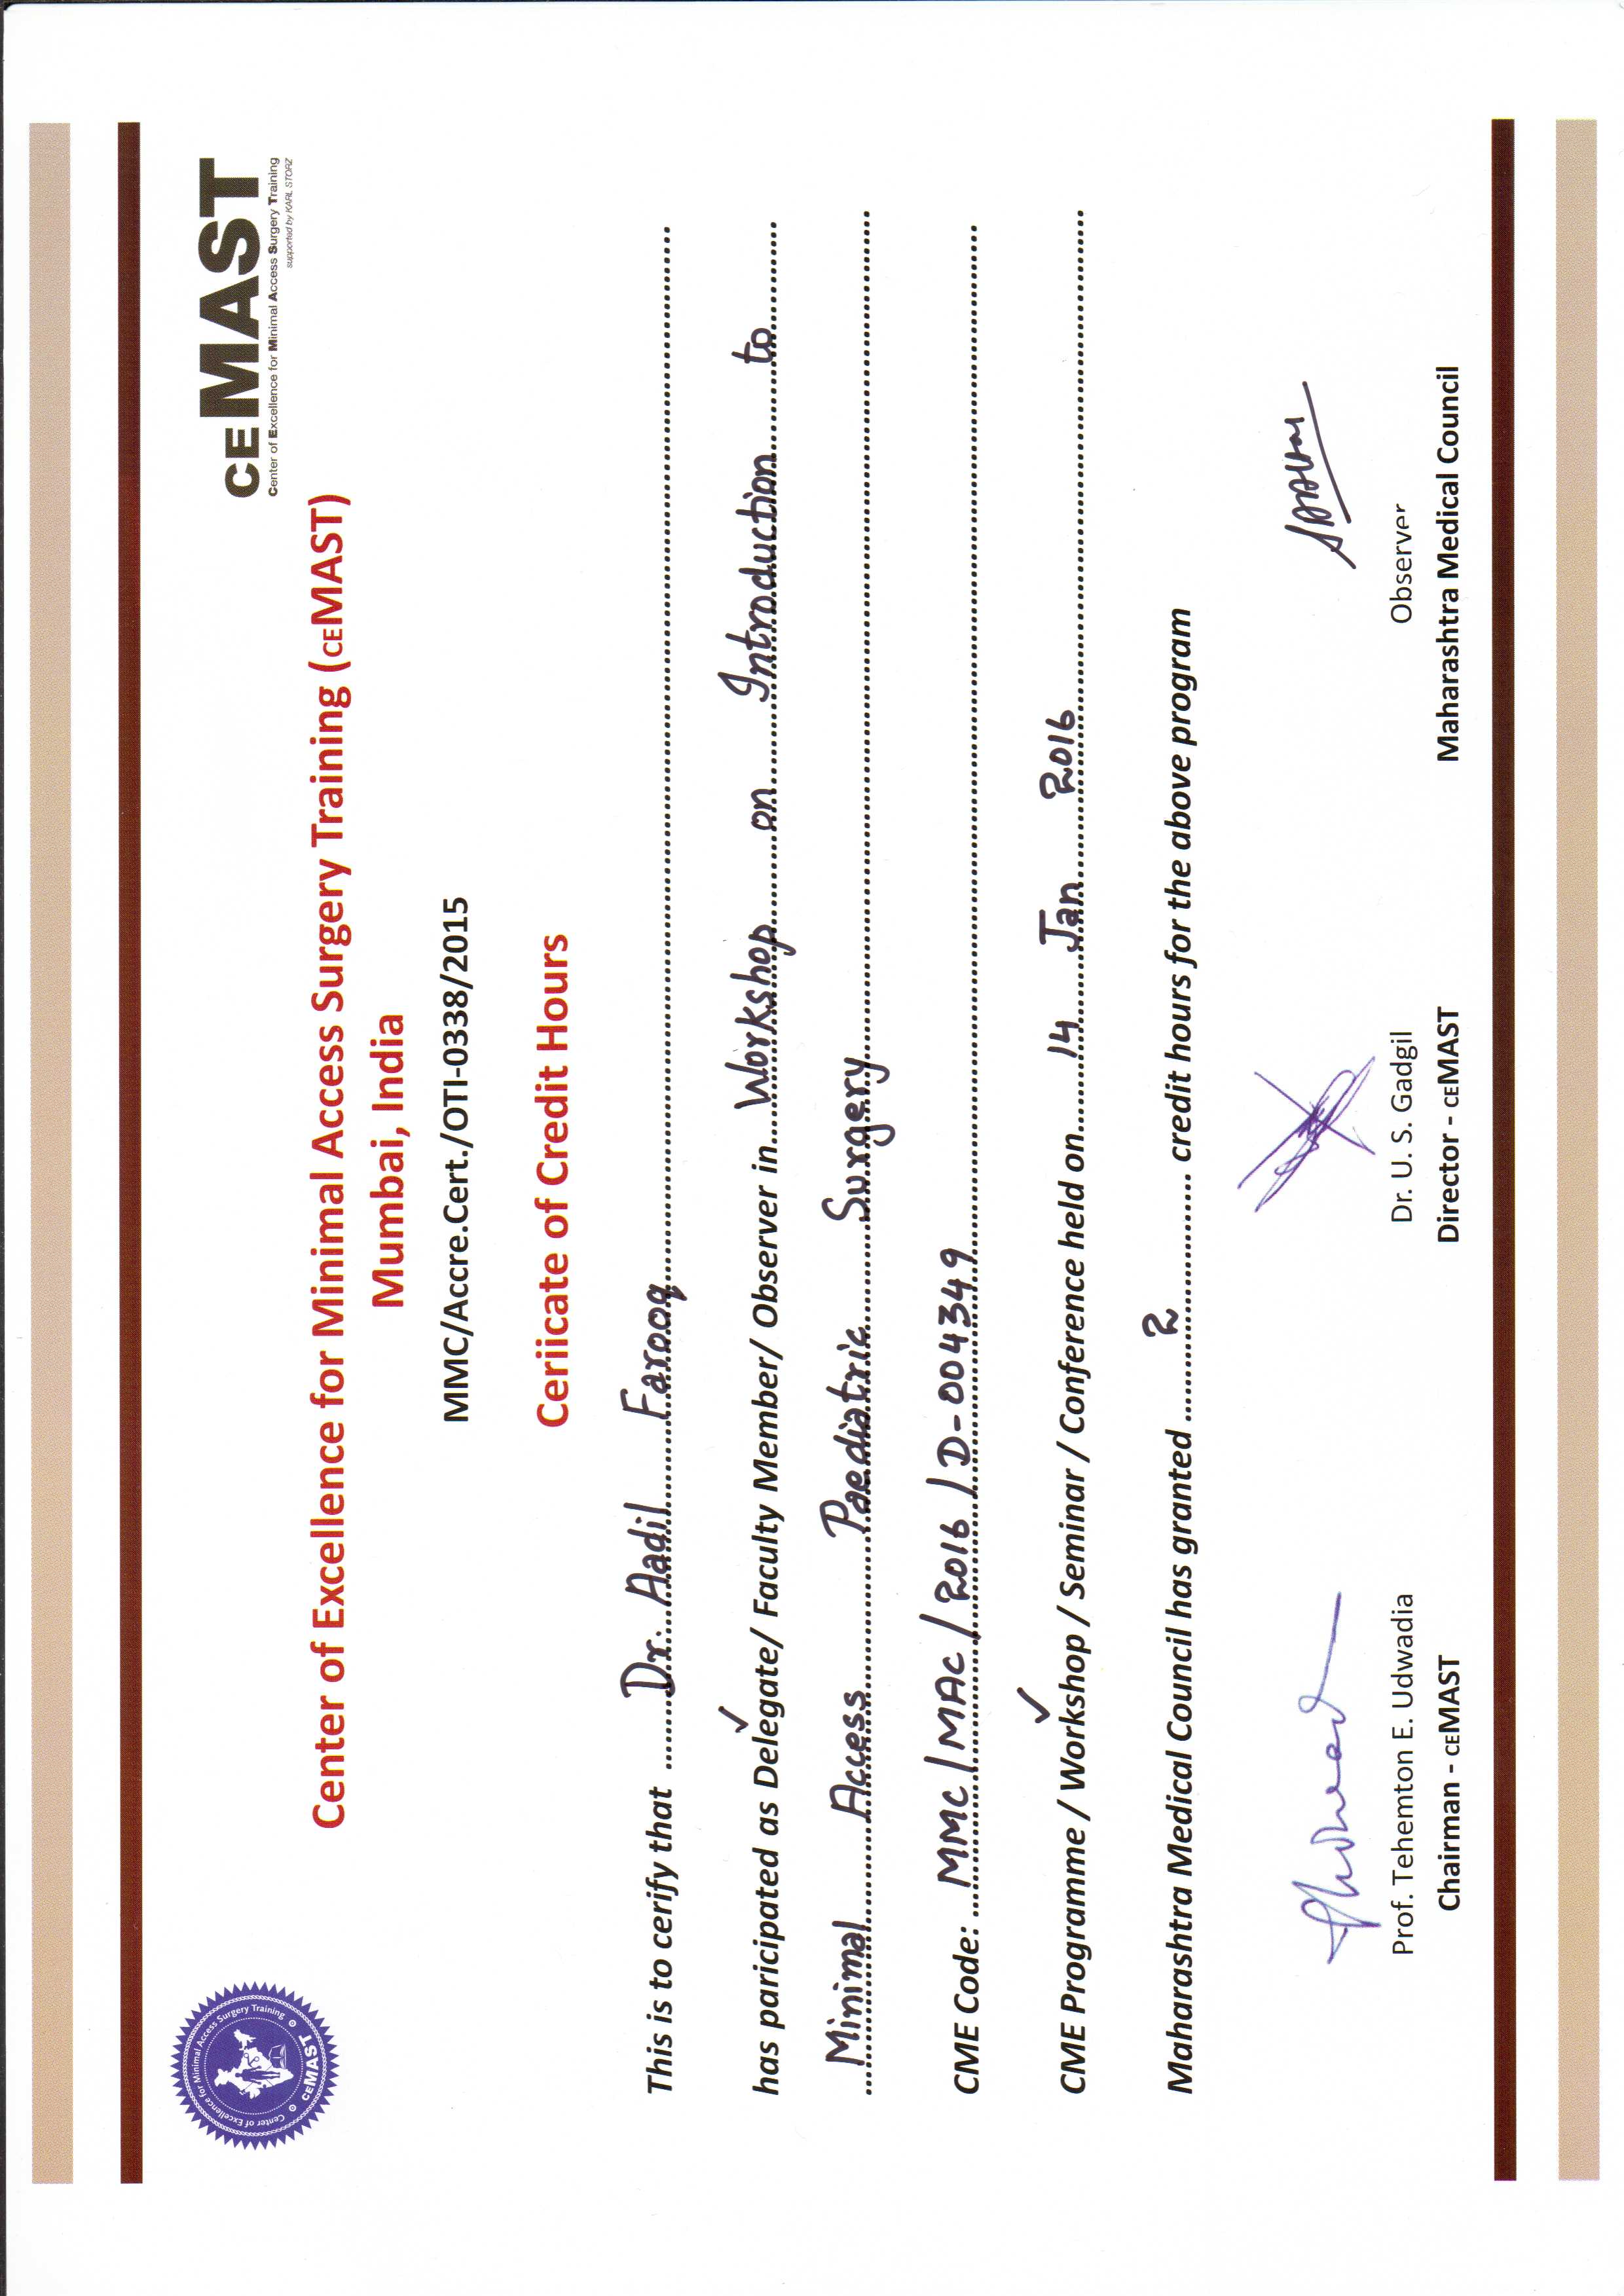 Center of Excellence for Minimal Access Surgery Training
CEMAST
CEMAST
Center of Excellence for Minimal Access Surgery Training
supported by KARL STORZ
Center of Excellence for Minimal Access Surgery Training (CEMAST)
Mumbai, India
MMC/Accre.Cert./OTI-0338/2015
Ceriicate of Credit Hours
This is to cerify that Dr. Aadil Farooq
has paricipated as Delegate/ Faculty Member/ Observer in Workshop on Introduction to
Minimal Access Paediatric Surgery
CME Code: MMC/MAC/2016/D-004349
CME Programme / Workshop / Seminar / Conference held on 14 Jan 2016
Maharashtra Medical Council has granted 2 credit hours for the above program
Prof. Tehemton E. Udwadia
Chairman - CEMAST
Dr. U. S. Gadgil
Director - CEMAST
Observer
Maharashtra Medical Council